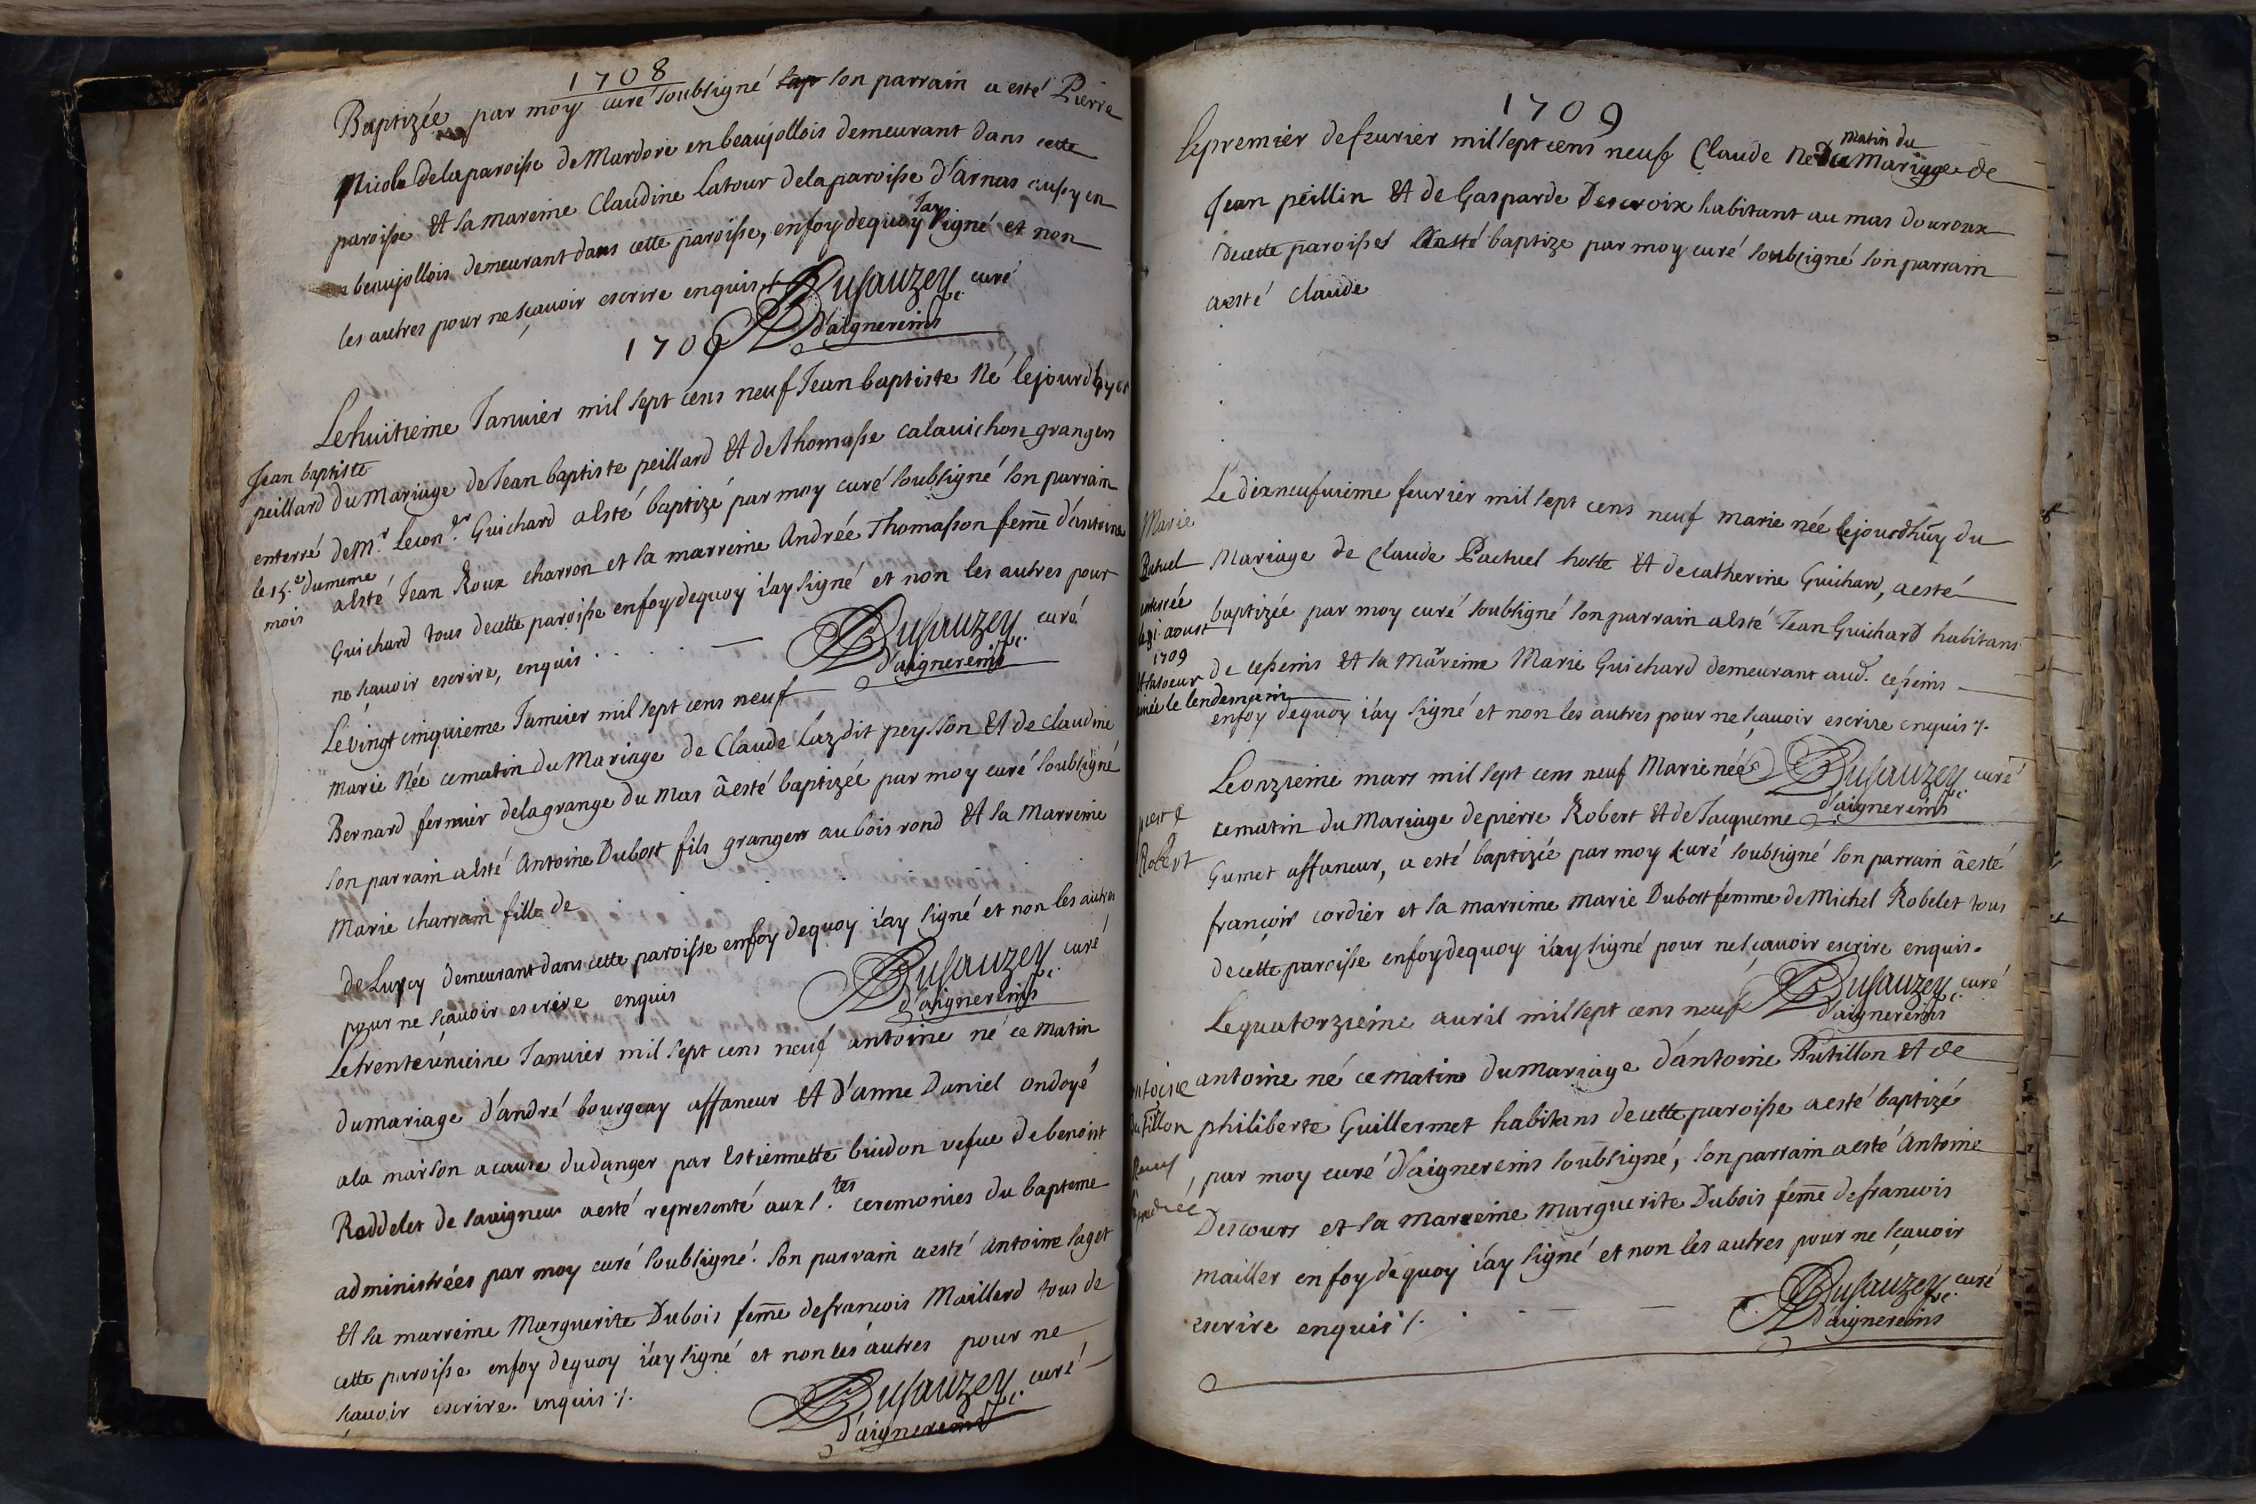 1708
Baptizée par moy curé soubsigné son parrain a esté Pierre
Nicole delaparoisse de Mardore en beaujollois demeurant dans cette
paroisse et sa mareine Claudine Latour delaparoisse d'arnas aussy en
beaujollois demeurant dans cette paroisse, enfoy dequoy J'ay signé et non
les autres pour ne sçavoir escrire enquis
Dusauzey curé
d'aignereins
1709
Le huitieme Janvier mil sept cens neuf Jean baptiste né lejourdhyer
Jean baptiste
peillard
du Mariage de Jean baptiste peillard et de thomasse calavichon grangers
enterré
le 15.e du meme
mois
de M.r Leon.d Guichard a esté baptizé par moy curé soubsigné son parrain
a esté Jean Roux charron et sa marreine Andrée Thomasson feme d'antoine
Guichard tous decette paroisse enfoydequoy i'ay signé et non les autres pour
ne sçavoir escrire, enquis
Dusauzey curé
d'aignereins
Le vingt cinquieme Janvier mil sept cens neuf
Marie Née cematin du Mariage de Claude Luz dit peysson et de Claudine
Bernard fermier delagrange du Mas a esté baptizée par moy curé soubsigné
son parrain a esté Antoine Dubost fils granger au bois rond et sa Marreine
Marie charrain fille de
de Lurcy demeurant dans cette paroisse enfoy dequoy i'ay signé et non les autres
pour ne scavoir escrire enquis
Dusauzey curé
d'aignereins
Le trenteunieme Janvier mil sept cens neuf antoine né ce matin
du mariage d'andré bourgeay affaneur et d'anne Daniel ondoyé
ala maison acause dudanger par Estiennette buidon vefue de benoist
Roddelet de savigneu a esté representé aux s.tes ceremonies du bapteme
administrées par moy curé soubsigné. son parrain a esté Antoine saget
et sa marreine Marguerite Dubois feme defrancois Maillard tous de
cette paroisse enfoy dequoy i'ay signé et non les autres pour ne
sçavoir escrire. enquis ./.
Dusauzey curé
d'aignereins
1709
Le premier defeurier mil sept cens neuf Claude Né du matin du Mariage de
Jean peillin et de Gasparde Descroix habitant au mas douroux
decette paroisse a esté baptize par moy curé soubsigné son parrain
a esté claude
Le dixneufuieme feurier mil sept cens neuf marie née lejourdhuy du
Marie
Patuel
enterrée
aoust
1709
et sa soeur
née le lendemain
Mariage de Claude Pactuel hoste et de catherine Guichard, a esté
baptizée par moy curé soubsigné son parrain a esté Jean Guichard habitans
de cesseins et sa Mareine Marie Guichard demeurant aud. cesseins
enfoy dequoy i'ay signé et non les autres pour ne sçavoir escrire enquis ./.
Dusauzey curé
d'aignereins
Leonzieme mars mil sept cens neuf Marie née
Robert
cematin du Mariage depierre Robert et de Jacqueme
Gumet affaneur, a esté baptizée par moy curé soubsigné son parrain a esté
françois cordier et sa marreine marie Dubost femme de Michel Robelet tous
decette paroisse enfoydequoy i'ay signé pour ne sçavoir escrire enquis.
Dusauzey curé
d'aignereins
Lequatorzieme auril mil sept cens neuf
antoine né cematin dumariage d'antoine Putillon et de
philiberte Guillermet habitans decette paroisse a esté baptizé
par moy curé d'aignereins soubsigné, son parrain a esté Antoine
Descours et sa Marreine Marguerite Dubois feme defrancois
Mailler enfoy dequoy i'ay signé et non les autres pour ne sçavoir
escrire enquis ./.
Dusauzey curé
d'aignereins